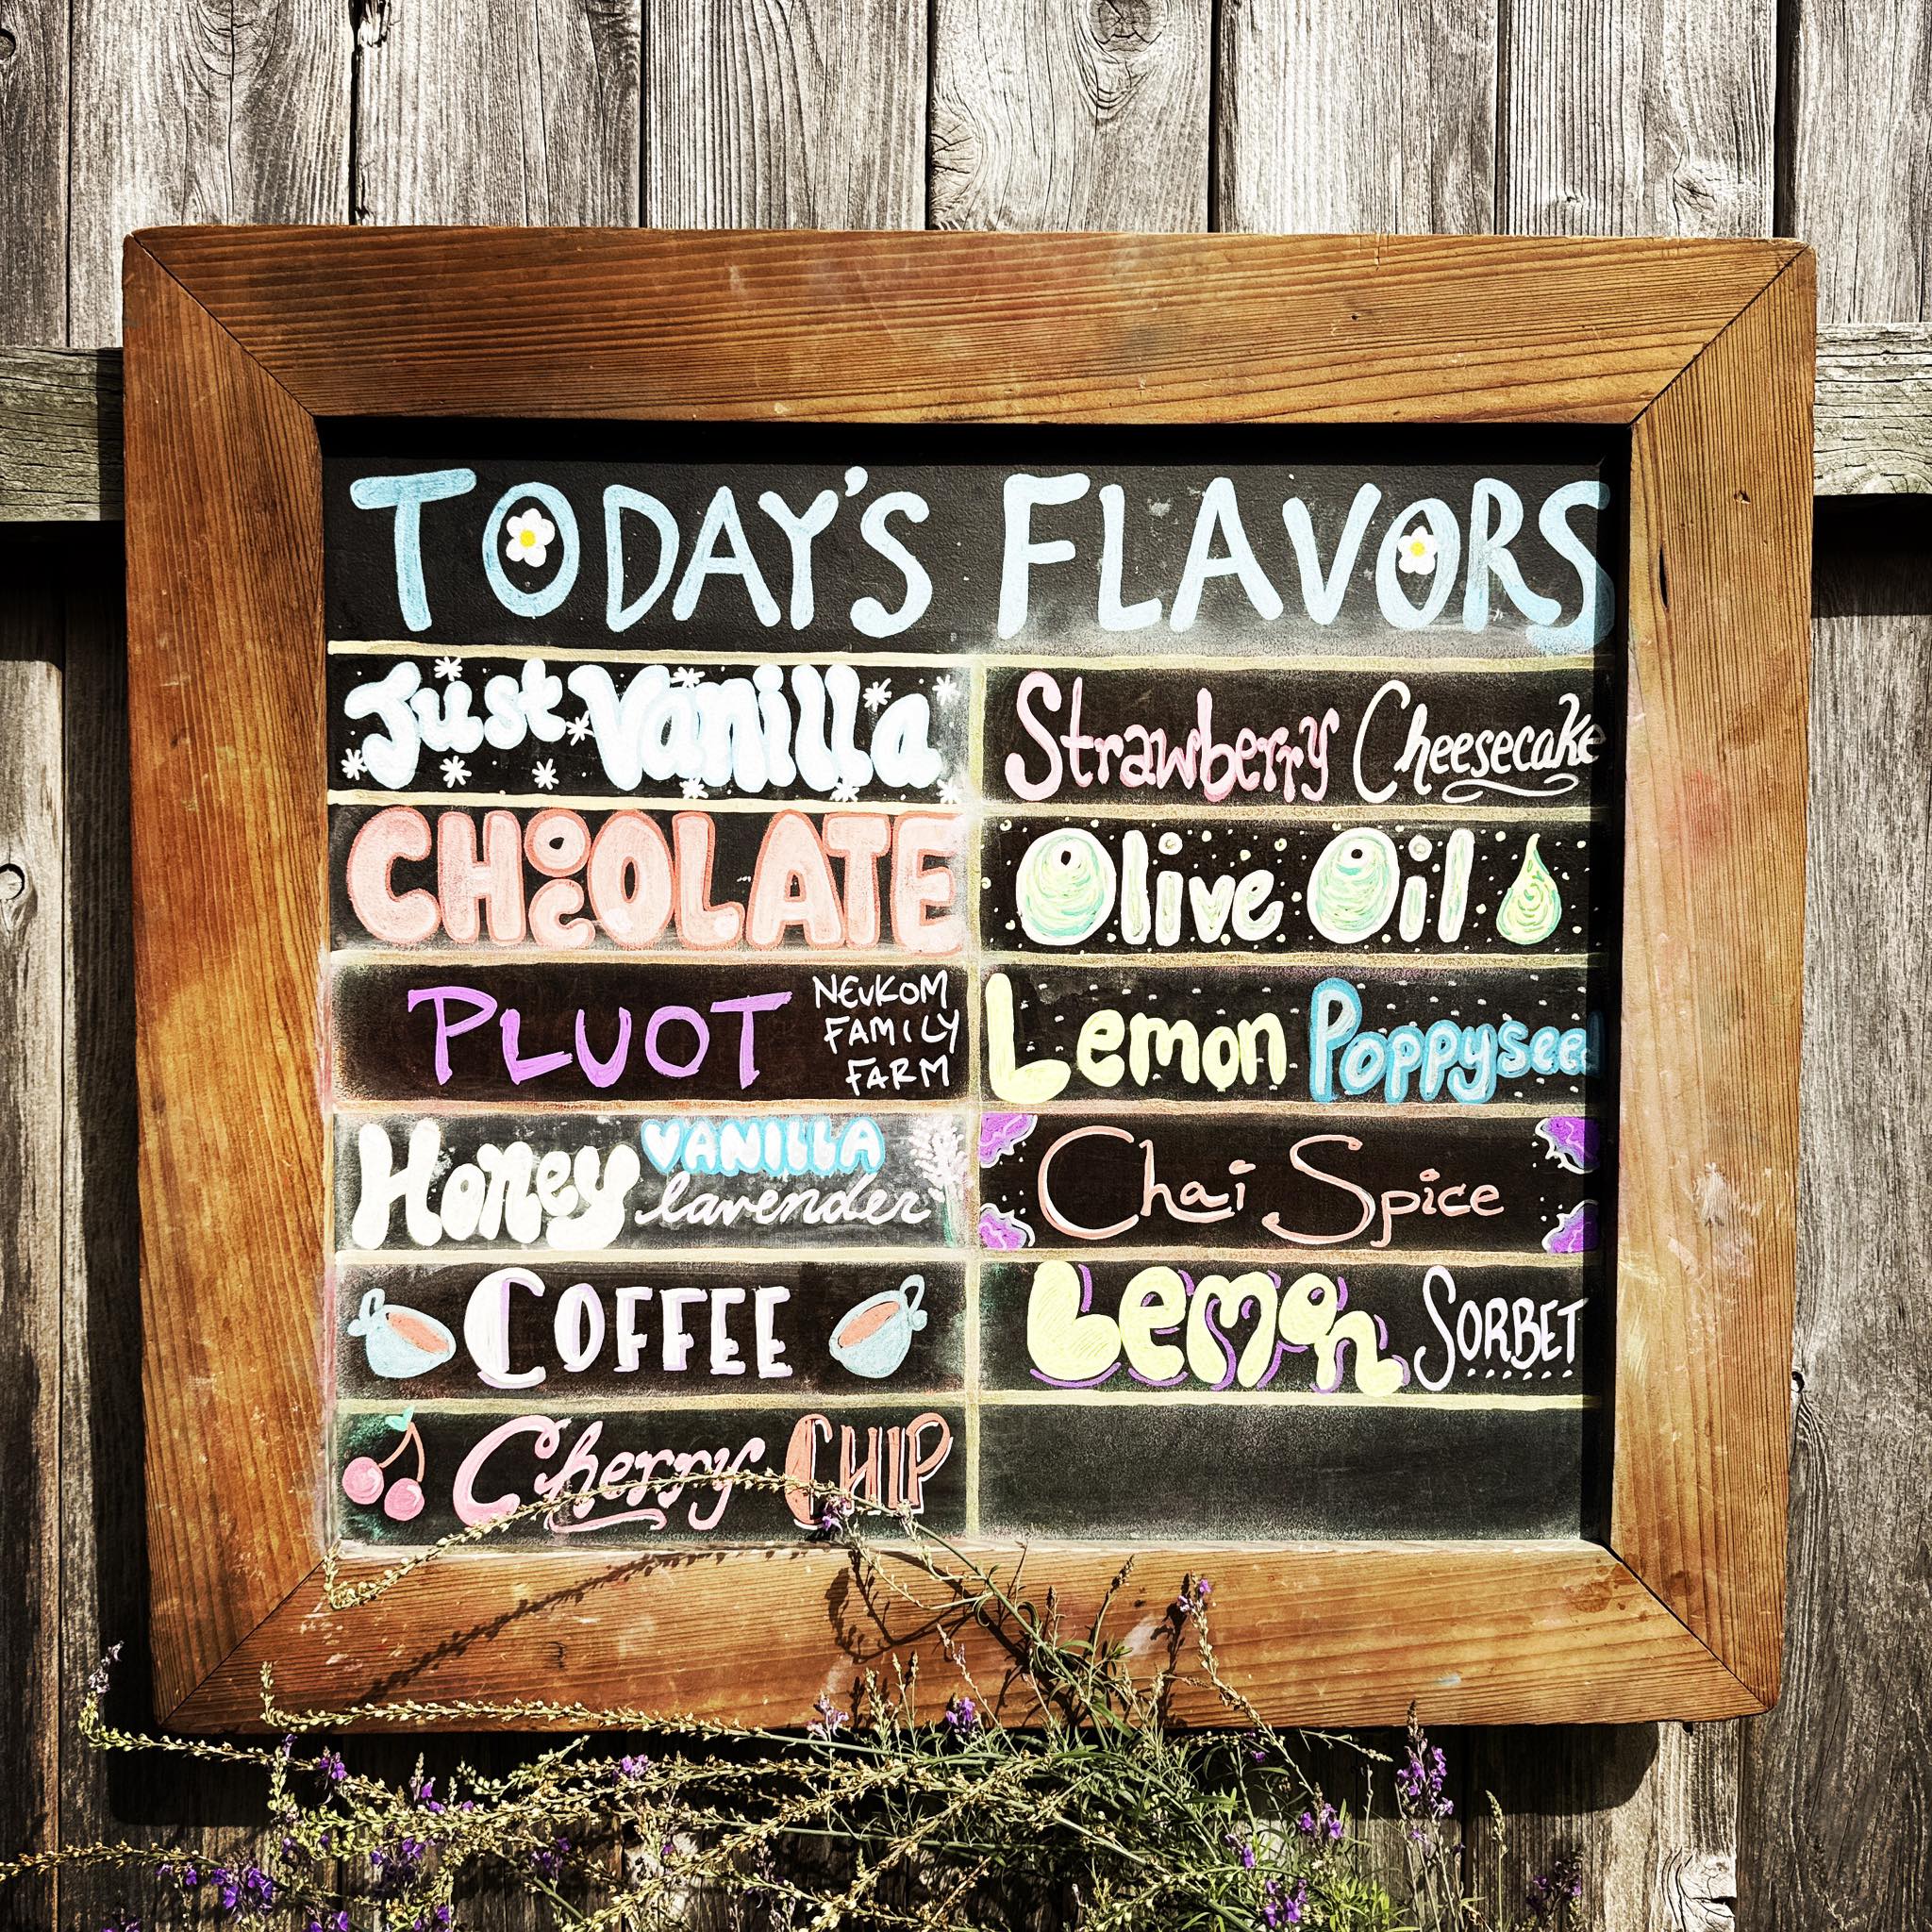 TODAY'S FLAVORS
Just Vanilla
CHOCOLATE
PLUOT
NEUKOM
FAMILY
FARM
Honey
VANILLA
lavender
COFFEE
Cherry CHIP
Strawberry Cheesecake
Olive Oil
Lemon Poppyseed
Chai Spice
Lemon SORBET